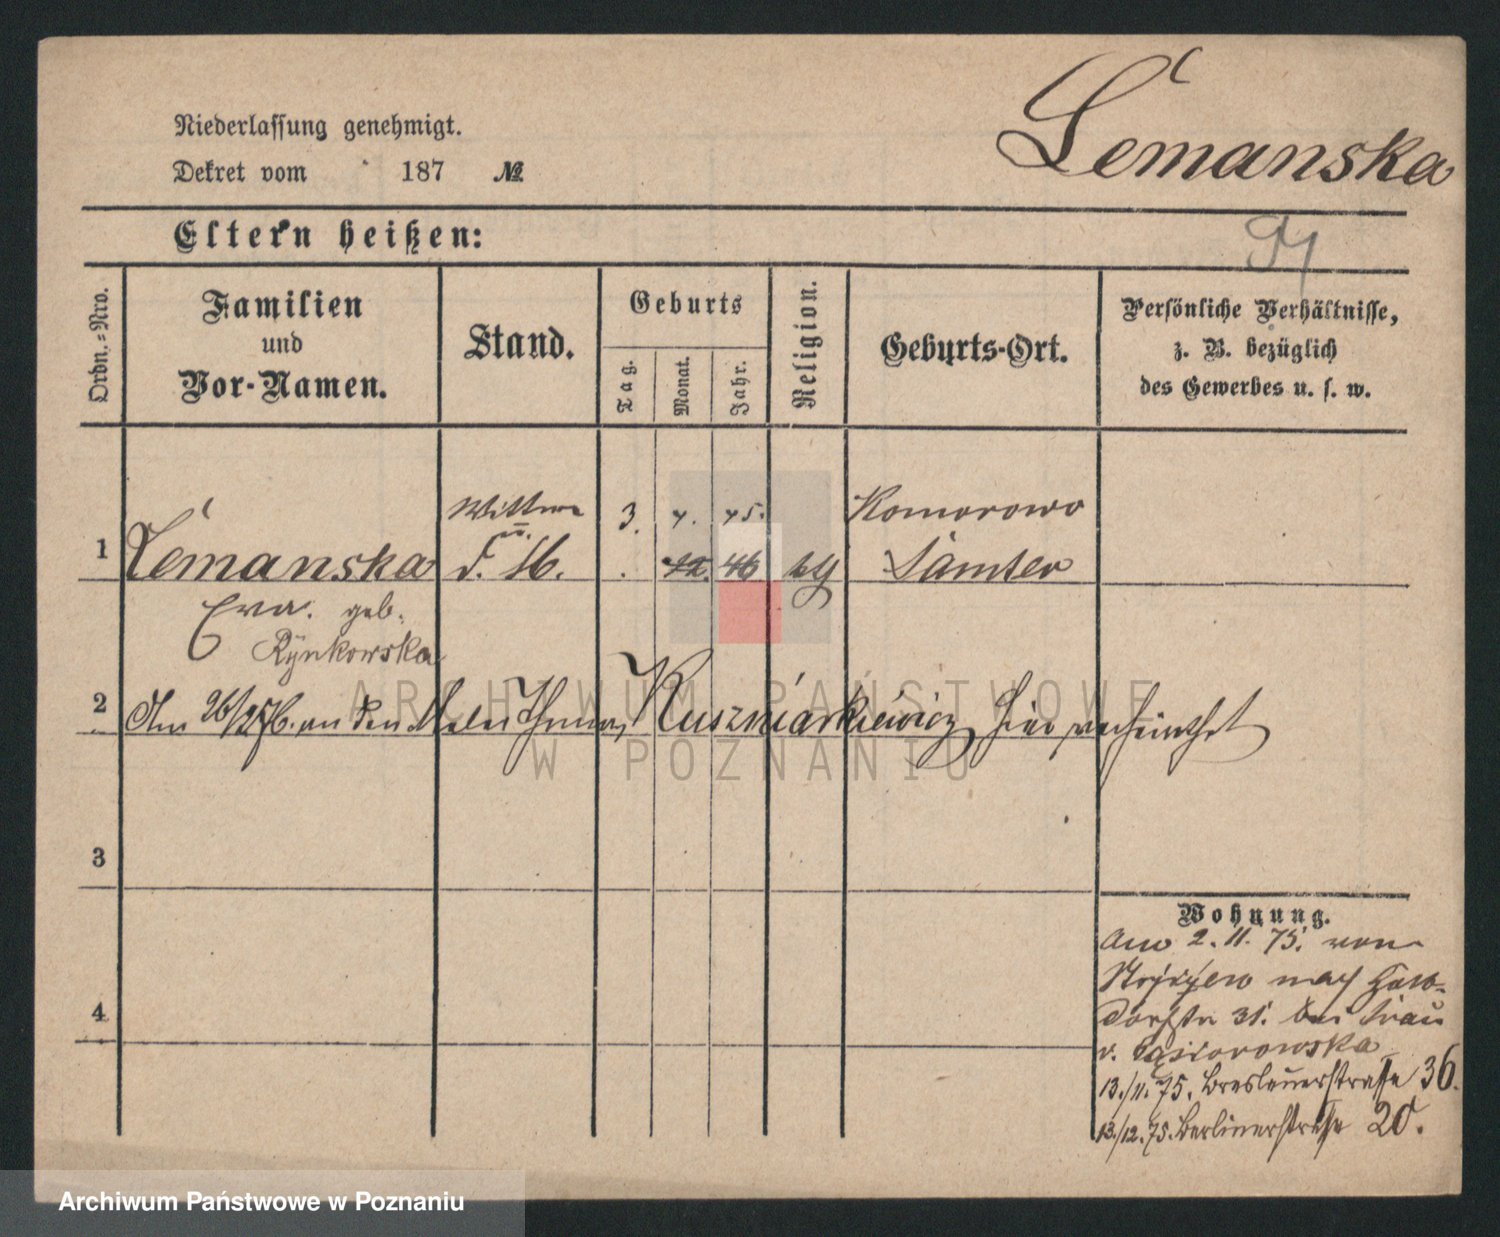 Lemanska
Niederlassung genehmigt.
Dekret vom 187 №
Eltern heißen:
Ordn.-Nro.
Familien
und
Vor-Namen.
Stand.
Geburts
Tag.
Monat.
Jahr.
Religion.
Geburts-Ort.
Persönliche Verhältnisse,
z. B. bezüglich
des Gewerbes u. s. w.
1
Lemanska
Eva. geb.
Rynkowska
Wittwe
u.
3.
12. 46
Komorowo
Samter
2
Am 26/2 76. an den Maler Thomas Kuszmarkiewicz hier verheirathet
3
4
Wohnung.
Am 2. 11. 75. von
nach
31. bei Frau
v. Gąsiorowska
13./11. 75. Breslauerstrasse 36.
13./12. 75. Berlinerstrasse 20.
ARCHIWUM PAŃSTWOWE
W POZNANIU
Archiwum Państwowe w Poznaniu